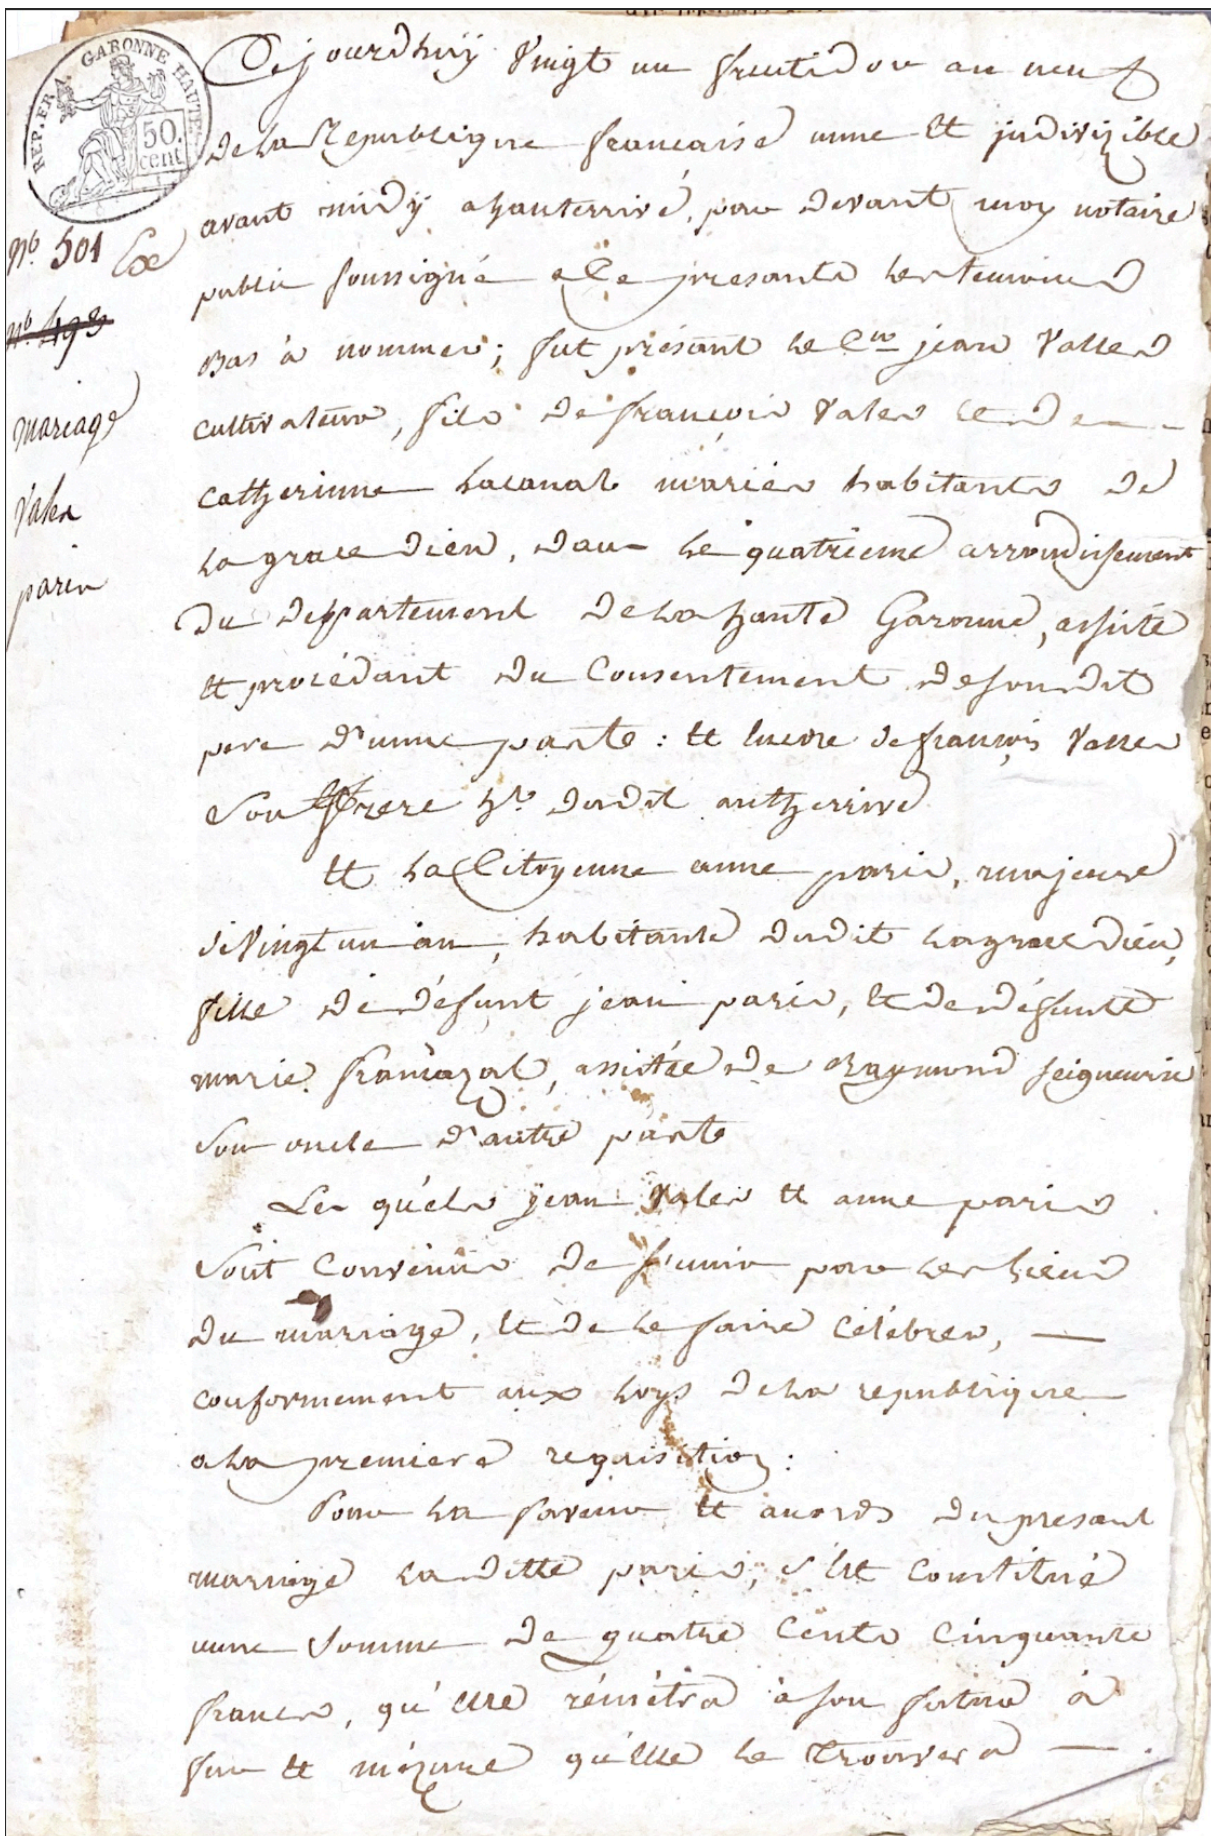 REP. FRA. GARONNE HAUTE.
50.
cent.
Cejourdhuÿ vingt un fructidor an neuf
de la Republique francaise unne et jndivizible
avant midÿ a hauterrivé, par devant moy notaire
public soussigné e les presants les temoins
Bas à nommer; fut présant le Cen jean Valles
cultivateur, fils de françois Vales et de
Catherinne Lacanal mariés habitants de
la grace dieu, dans le quatrieme arrondissement
du deppartement de la haute Garonne, assisté
et procédant du Consentement de son dit
pere d'unne parte : et encore de françois Valles
son frere ht dudit autherrive
et la Citoyenne anne paris, majeure
de vingt un an, habitante dudit lagrace dieu,
fille de défunt jean paris, et de défunte
marie framazal, assistée de Raymond seigneurie
son oncle d'autre parte
Les quéls jean Vales et anne paris
sont Convénus de s'unir par les liens
du marriage, et de le faire Célébrer,
conformement aux loys de la republique
a la premiere requisition :
Pour la faveur et acords du presant
marriage la ditte paris, s'est Constitué
unne somme de quatre Cents Cinquante
francs, qu'elle rémétra à son futur à
fur et mézure qu'elle le trouvera
No. 501
No. 493
mariage
Vales
paris